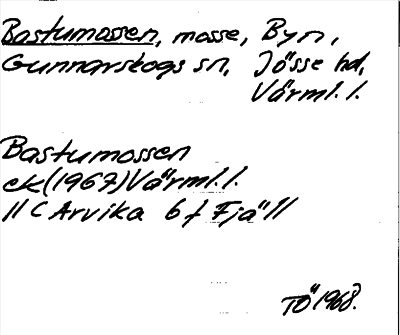 Bastumossen, mosse, Byn,
Gunnarskogs sn, Jösse hd,
Värml. l.
Bastumossen
ek (1967) Värml. l.
11 C Arvika 6 f Fjäll
TÖ 1968.